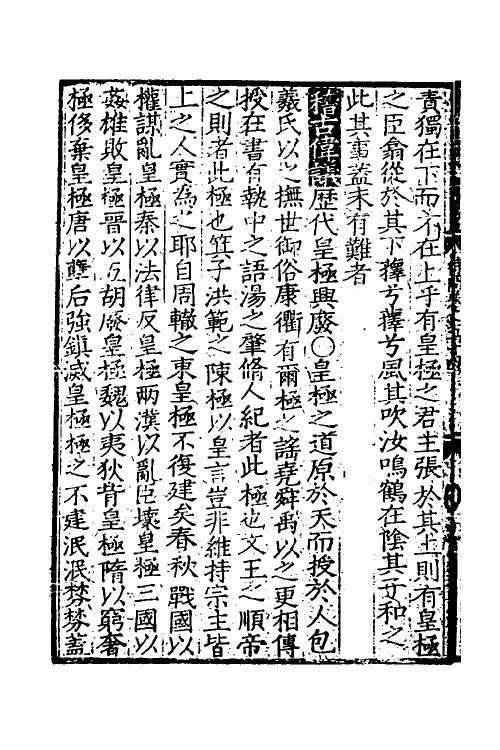 責獨在下而不在上乎有皇極之君主張於其上則有皇極
之臣翕從於其下蘀兮蘀兮風其吹汝鳴鶴在陰其子和之
此其事蓋未有難者
稽古偉議歷代皇極興廢○皇極之道原於天而授於人包
羲氏以之撫世御俗康衢有爾極之謠堯舜禹以之更相傳
授在書有執中之語湯之肇脩人紀者此極也文王之順帝
之則者此極也箕子洪範之陳極以皇言豈非維持宗主皆
上之人實為之耶自周轍之東皇極不復建矣春秋戰國以
權謀亂皇極秦以法律反皇極兩漢以亂臣壞皇極三國以
姦雄敗皇極晉以五胡廢皇極魏以夷狄背皇極隋以窮奢
極侈棄皇極唐以豔后強鎮滅皇極極之不建泯泯棼棼蓋